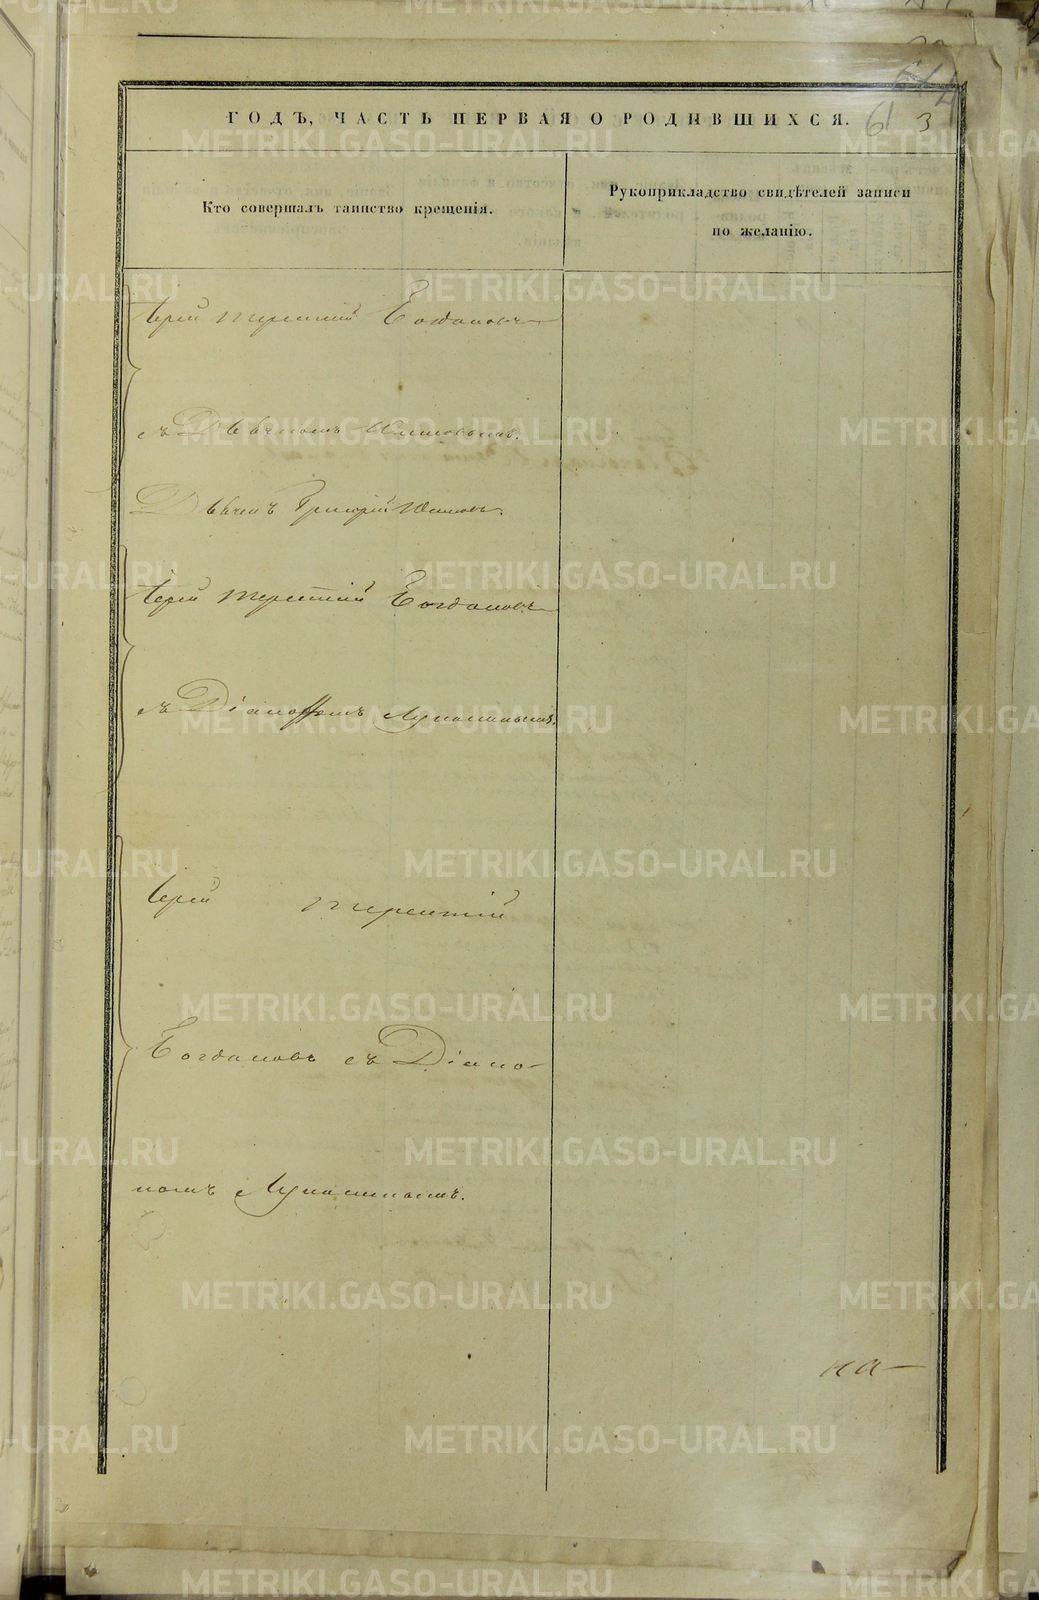 ГОДЪ, ЧАСТЬ ПЕРВАЯ О РОДИВШИХСЯ.
61 3
Кто совершалъ таинство крещенія.
Рукоприкладство свидѣтелей записи
по желанію.
Іерей Терентій Богдановъ
съ Дьячкомъ
Дьячекъ Григорій
Іерей Терентій Богдановъ
съ Діакономъ Лукашинымъ
Іерей Терентій
Богдановъ съ Діако-
номъ Лукашинымъ.
на-
METRIKI.GASO-URAL.RU